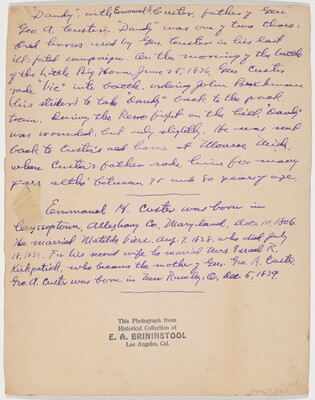 "Dandy", with Emmanuel H. Custer, father of Gen
Geo. A. Custer. "Dandy" was one of two thoro-
bred horses used by Gen. Custer in his last
ill-fated campaign. On the morning of the battle
of the Little Big Horn, June 25, 1876, Gen. Custer
rode "Vic" into battle, ordering John Burkman
(his striker) to take "Dandy" back to the pack
train. During the Reno fight on the hill, Dandy
was wounded, but only slightly. He was sent
back to Custer's old home at Monroe, Mich,
where Custer's father rode him for many
years altho' between 75 and 80 years of age.
Emmanuel H. Custer was born in
Cryssoptown, Alleghany Co, Maryland, Dec. 10, 1806.
He married Matilda Viers, Aug. 7, 1828, who died July
18, 1835. For his second wife he married Mrs Israel R.
Kirkpatrick, who became the mother of Gen. Geo. A. Custer
Geo. A. Custer was born in New Rumley, O. Dec 5, 1839.
This Photograph from
Historical Collection of
E. A. BRININSTOOL
Los Angeles, Cal.